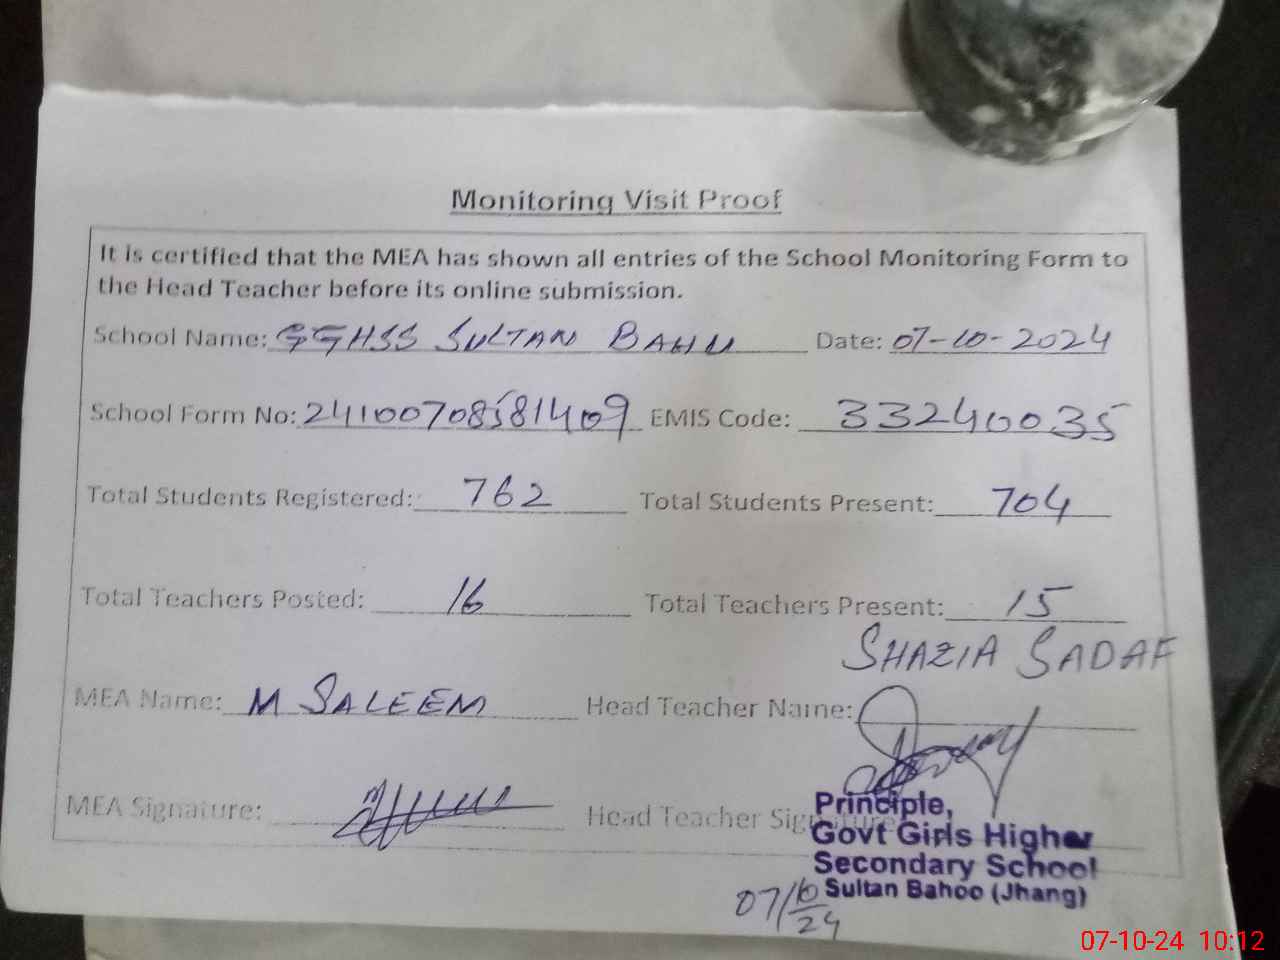 Monitoring Visit Proof
It is certified that the MEA has shown all entries of the School Monitoring Form to
the Head Teacher before its online submission.
School Name: GGHSS SULTAN BAHU Date: 07-10-2024
School Form No: 24100708581409 EMIS Code: 33240035
Total Students Registered: 762 Total Students Present: 704
Total Teachers Posted: 16 Total Teachers Present: 15
SHAZIA SADAF
MEA Name: M SALEEM Head Teacher Name:
MEA Signature: Head Teacher Signature
Principle,
Govt Girls Higher
Secondary School
Sultan Bahoo (Jhang)
07/10/24
07-10-24 10:12